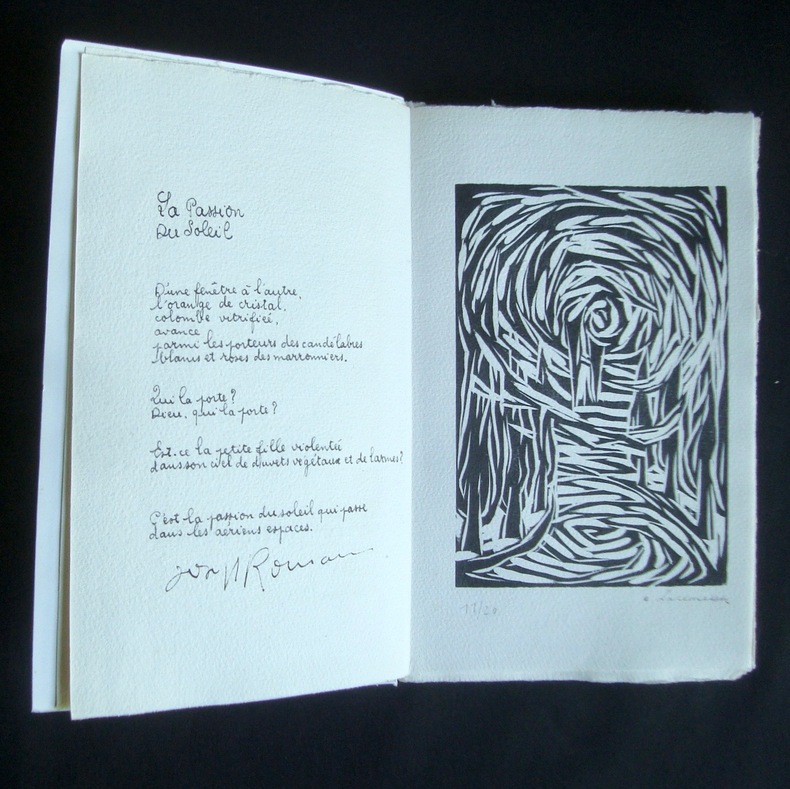 La Passion
Du Soleil
D'une fenêtre à l'autre,
l'orange de cristal,
colombe vitrifiée,
avance
parmi les porteurs des candélabres
blancs et roses des marronniers.
Qui la porte?
Dieu, qui la porte?
Est-ce la petite fille violentée
dans son ciel de duvets végétaux et de larmes?
C'est la passion du soleil qui passe
dans les aériens espaces.